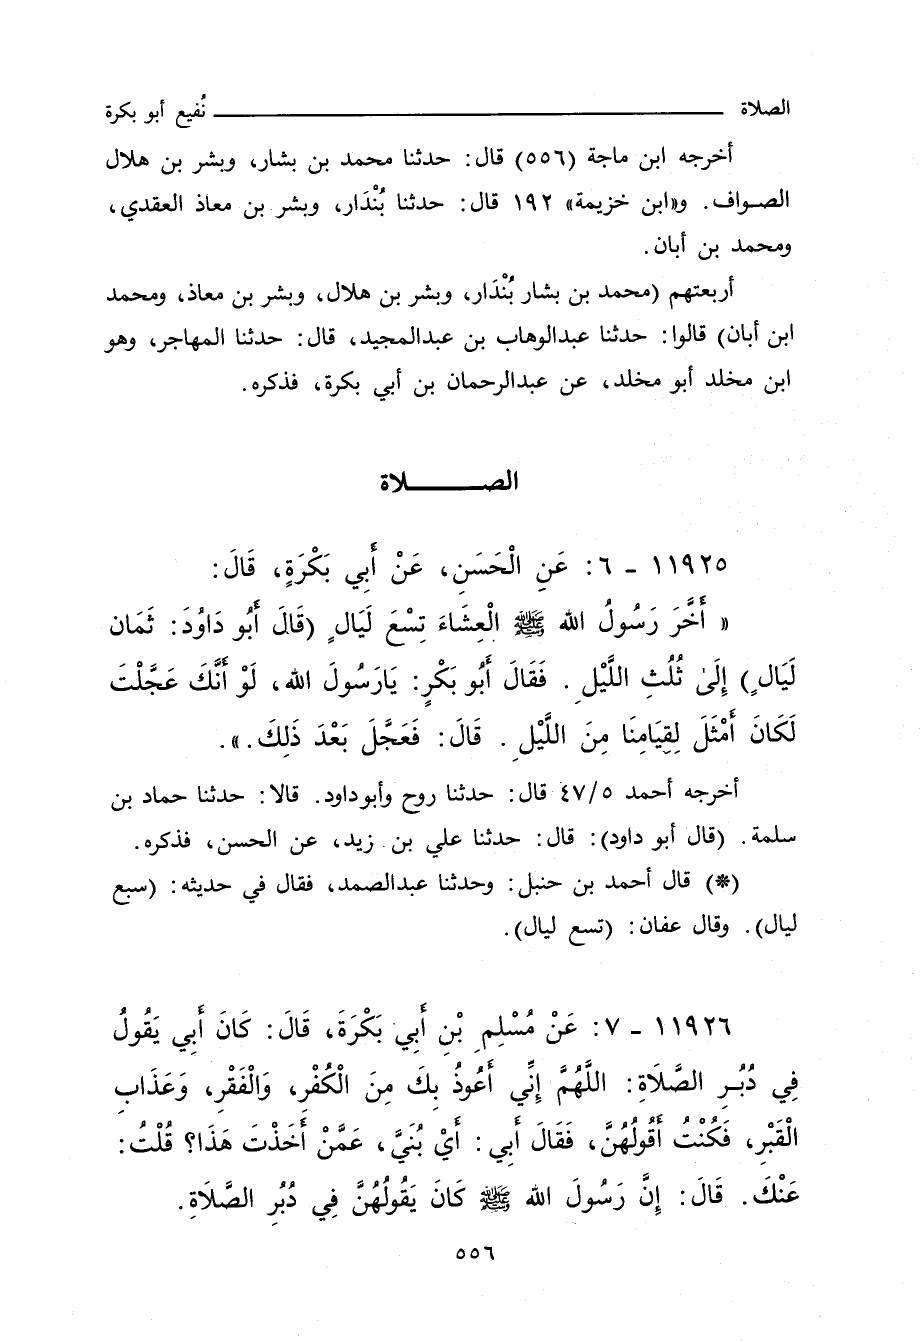 الصلاة ــــــــــــــــــــ نُفيع أبو بكرة
أخرجه ابن ماجة (٥٥٦) قال: حدثنا محمد بن بشار، وبشر بن هلال
الصواف. و«ابن خزيمة» ١٩٢ قال: حدثنا بُنْدَار، وبشر بن معاذ العقدي،
ومحمد بن أبان.
أربعتهم (محمد بن بشار بُنْدَار، وبشر بن هلال، وبشر بن معاذ، ومحمد
ابن أبان) قالوا: حدثنا عبدالوهاب بن عبدالمجيد، قال: حدثنا المهاجر، وهو
ابن مخلد أبو مخلد، عن عبدالرحمان بن أبي بكرة، فذكره.
الصـــــــلاة
١١٩٢٥ - ٦: عَنِ الْحَسَنِ، عَنْ أَبِي بَكْرَةٍ، قَالَ:
« أَخَّرَ رَسُولُ الله ﷺ الْعِشَاءَ تِسْعَ لَيَالٍ (قَالَ أَبُو دَاوُدَ: ثَمَان
لَيَالٍ) إِلَىٰ ثُلُثِ اللَّيْلِ. فَقَالَ أَبُو بَكْرٍ: يَارَسُولَ الله، لَوْ أَنَّكَ عَجَّلْتَ
لَكَانَ أَمْثَلَ لِقِيَامِنَا مِنَ اللَّيْلِ. قَالَ: فَعَجَّلَ بَعْدَ ذَلِكَ.».
أخرجه أحمد ٤٧/٥ قال: حدثنا روح وأبوداود. قالا: حدثنا حماد بن
سلمة. (قال أبو داود): قال: حدثنا علي بن زيد، عن الحسن، فذكره.
(*) قال أحمد بن حنبل: وحدثنا عبدالصمد، فقال في حديثه: (سبع
ليال). وقال عفان: (تسع ليال).
١١٩٢٦ - ٧: عَنْ مُسْلِمِ بْنِ أَبِي بَكْرَةَ، قَالَ: كَانَ أَبِي يَقُولُ
فِي دُبُرِ الصَّلَاةِ: اللَّهُمَّ إِنِّي أَعُوذُ بِكَ مِنَ الْكُفْرِ، وَالْفَقْرِ، وَعَذَابِ
الْقَبْرِ، فَكُنْتُ أَقُولُهُنَّ، فَقَالَ أَبِي: أَيْ بُنَيَّ، عَمَّنْ أَخَذْتَ هَذَا؟ قُلْتُ:
عَنْكَ. قَالَ: إِنَّ رَسُولَ الله ﷺ كَانَ يَقُولُهُنَّ فِي دُبُرِ الصَّلَاةِ.
٥٥٦